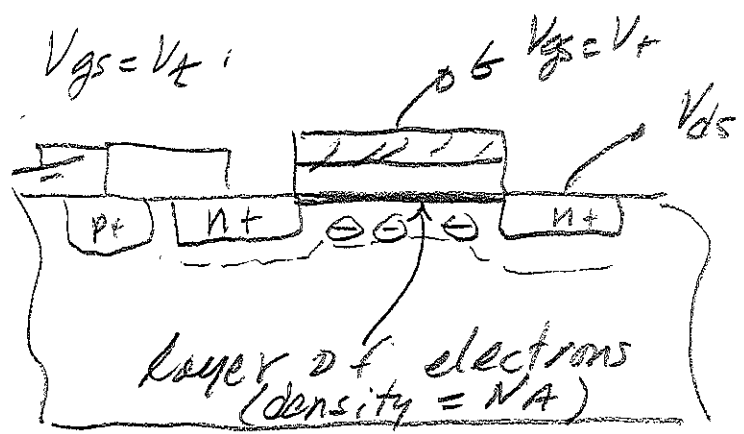 Vgs = Vt :
G Vgs = Vt
Vds
p+ n+ n+
⊖ ⊖ ⊖
layer of electrons
(density = NA)